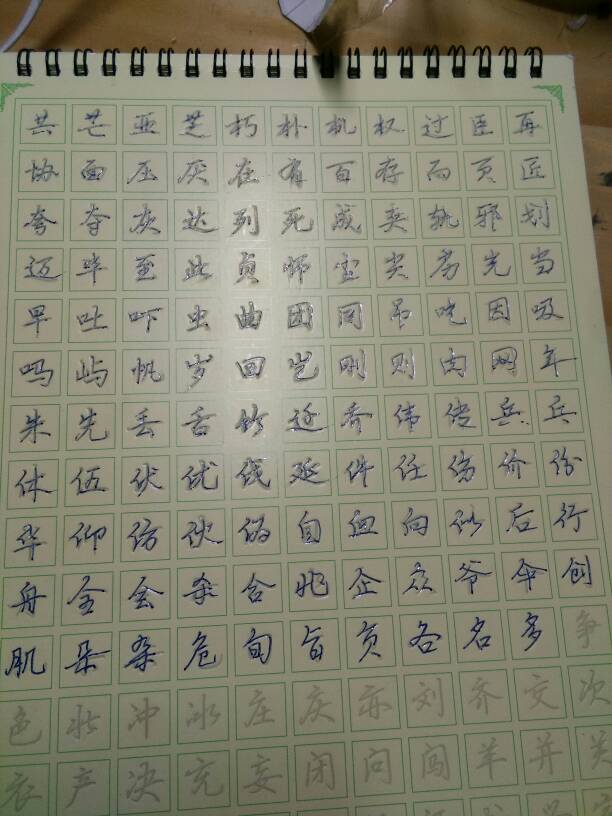 共芒亚芝朽朴机权过臣再
协面压厌在有百存而页匠
夸夺灰达列死成夹轨邪划
迈毕至此贞师尘尖劣光当
早吐吓虫曲团同吊吃因吸
吗屿帆岁回岂刚则肉网年
朱先丢舌竹迁乔伟传乒乓
休伍伏优伐延件任伤价份
华仰仿伙伪自血向似后行
舟全会杀合兆企众爷伞创
肌朵杂危旬旨负各名多争
色壮冲冰庄庆亦刘齐交次
衣产决充妄闭问闯羊并关